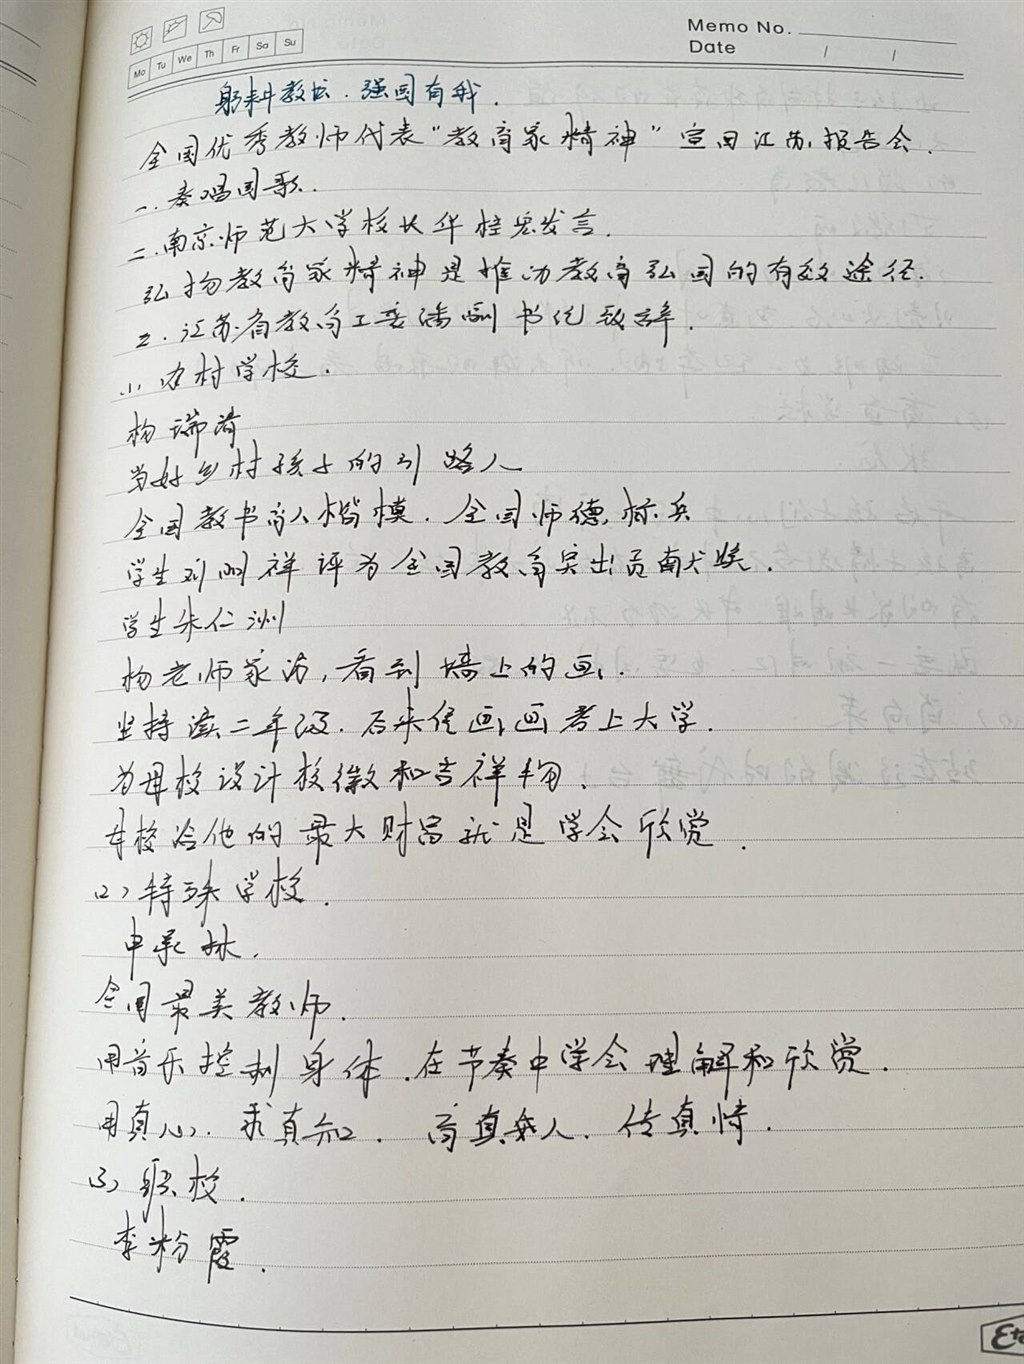 Memo No.
Date
Mo Tu We Th Fr Sa Su
躬耕教坛.强国有我.
全国优秀教师代表“教育家精神”宣回江苏报告会.
一.奏唱国歌.
二.南京师范大学校长华桂宏发言.
弘扬教育家精神是推动教育弘国的有效途径.
三.江苏省教育工委潘副书记致辞.
(1)农村学校.
杨瑞清
当好乡村孩子的引路人
全国教书育人楷模.全国师德标兵
学生刘明祥评为全国教育突出贡献奖.
学生朱仁洲
杨老师家访,看到墙上的画.
坚持读二年级.后来凭画画考上大学.
为母校设计校徽和吉祥物.
母校给他的最大财富就是学会欣赏.
(2)特殊学校.
申承林.
全国最美教师.
用音乐控制身体.在节奏中学会理解和欣赏.
用真心.求真知.育真人.传真情.
(3)职校.
李粉霞.